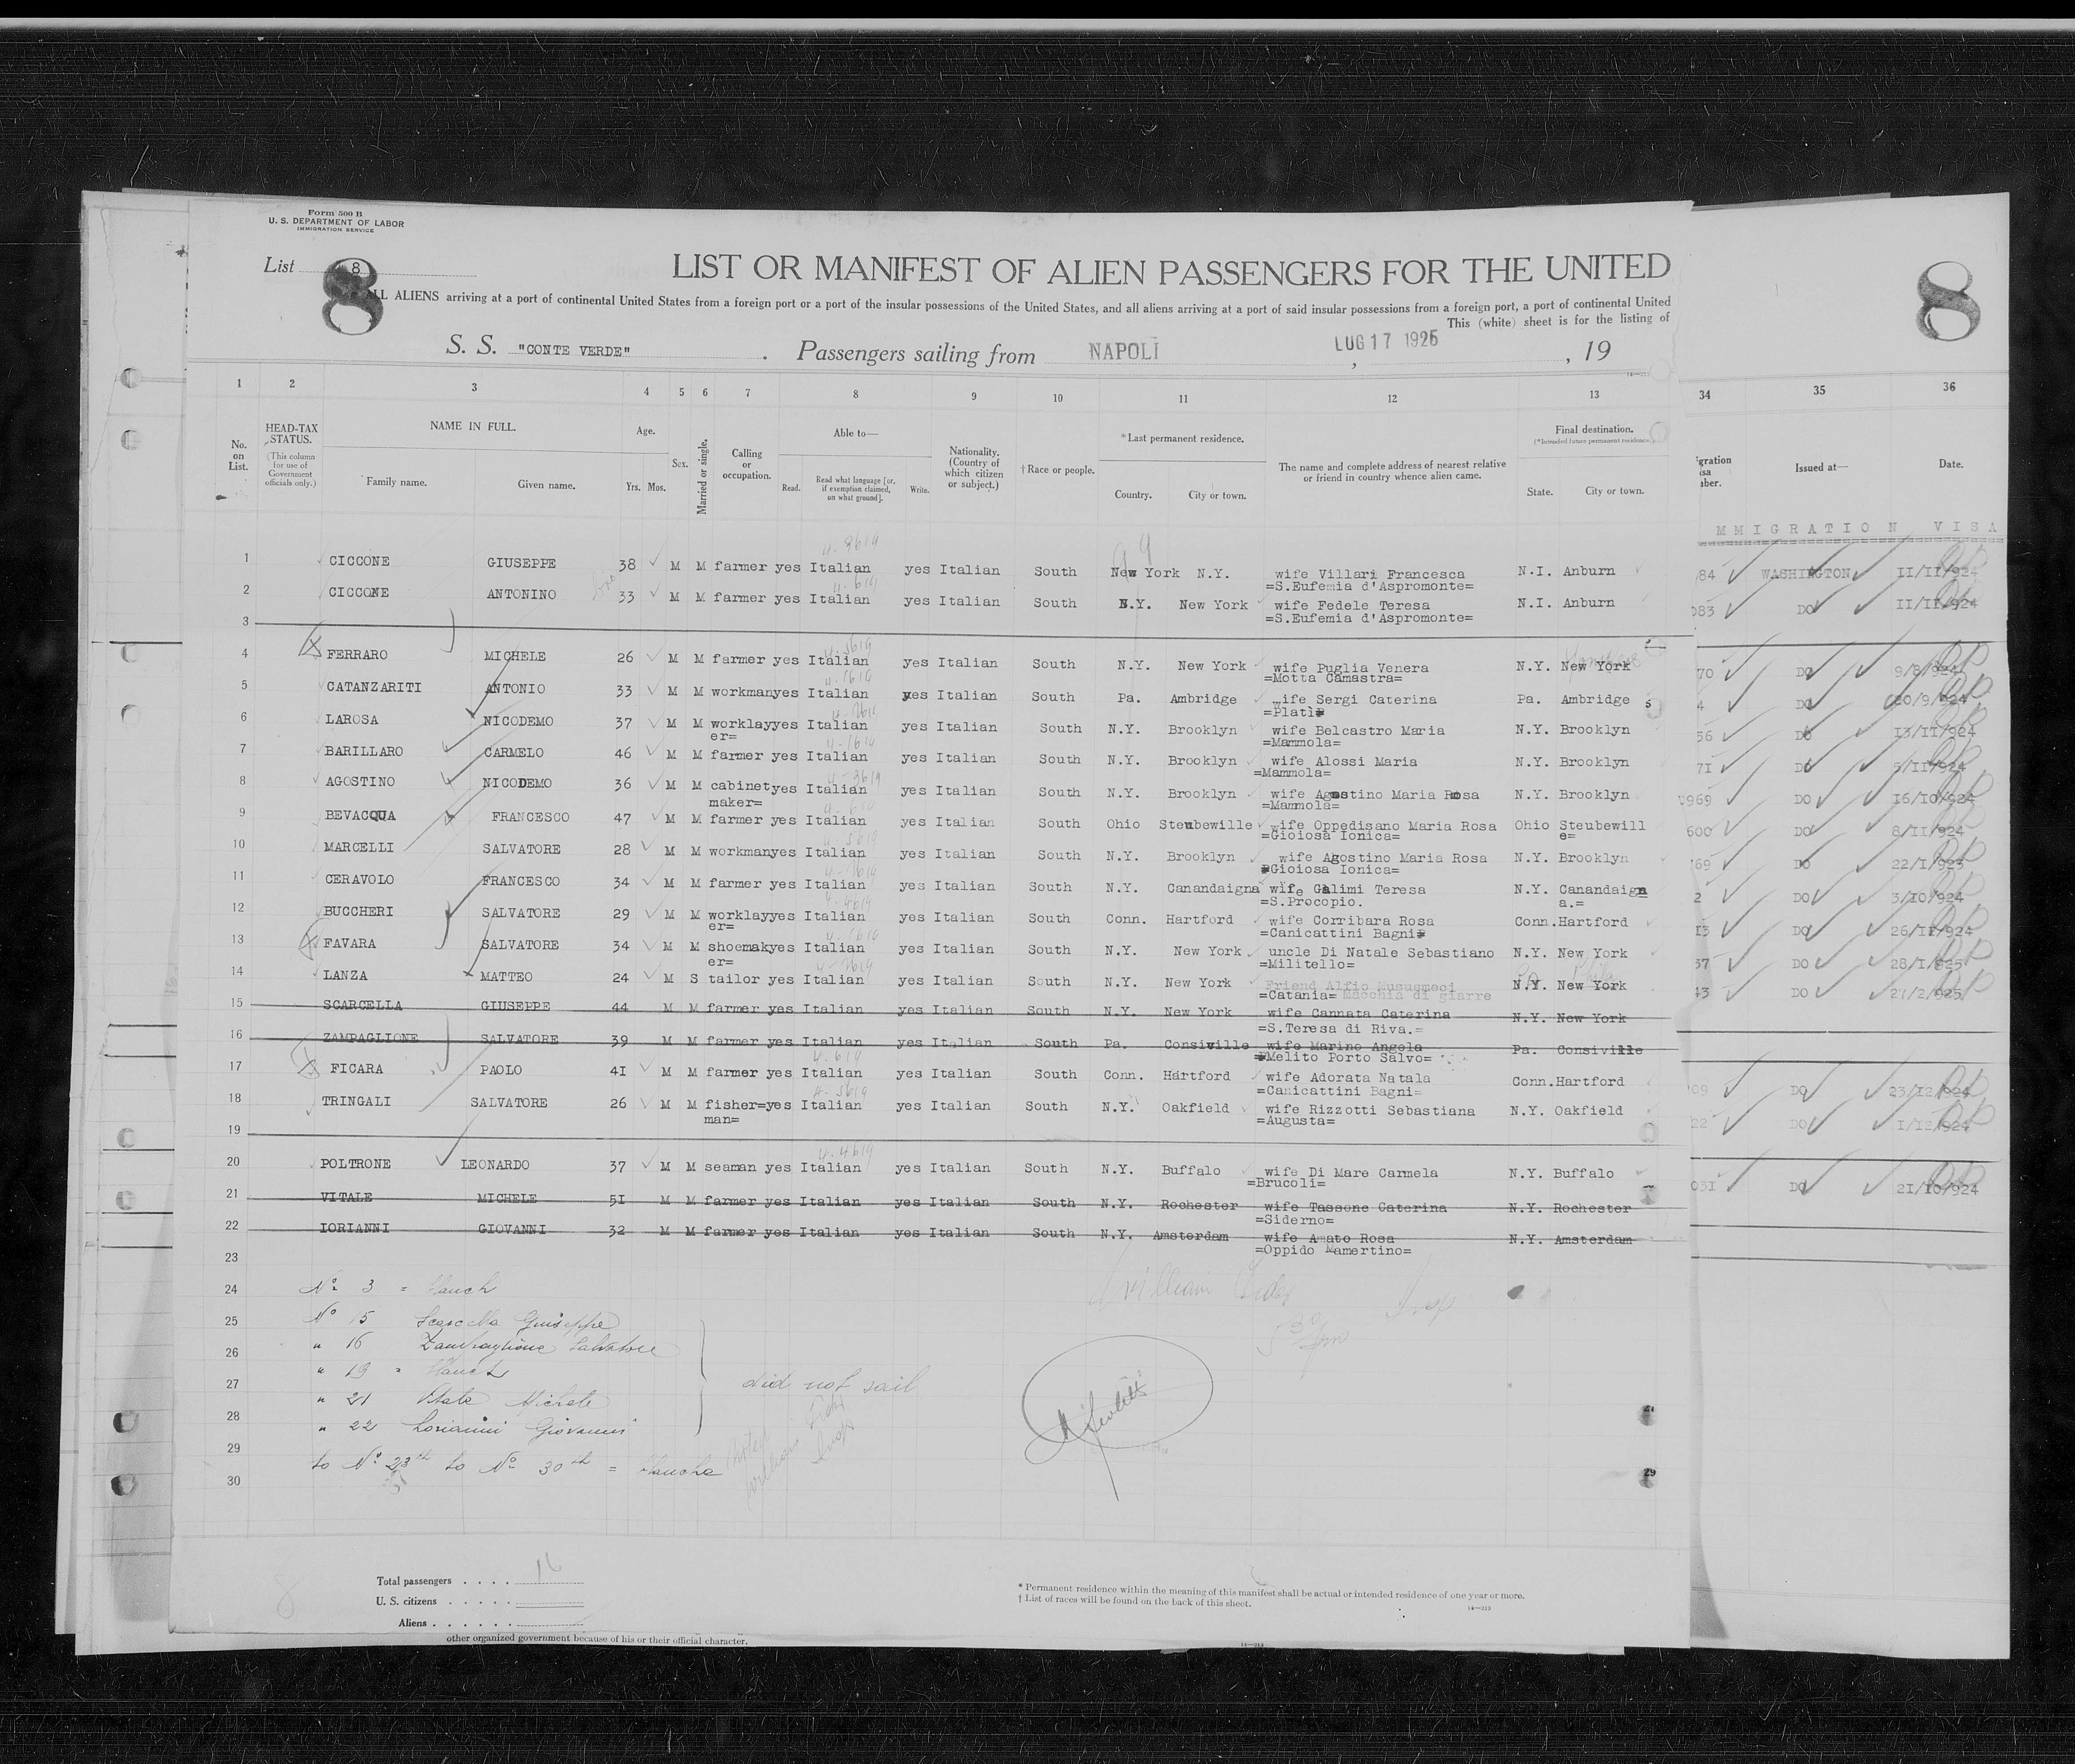 Form 500 B
U. S. DEPARTMENT OF LABOR
IMMIGRATION SERVICE
List 8
8
LIST OR MANIFEST OF ALIEN PASSENGERS FOR THE UNITED
8
ALL ALIENS arriving at a port of continental United States from a foreign port or a port of the insular possessions of the United States, and all aliens arriving at a port of said insular possessions from a foreign port, a port of continental United
This (white) sheet is for the listing of
S. S. "CONTE VERDE". Passengers sailing from NAPOLI, LUG 17 1925, 19
1 2 3 4 5 6 7 8 9 10 11 12 13 34 35 36
No. on List.
HEAD-TAX STATUS.
(This column for use of Government officials only.)
NAME IN FULL.
Family name. Given name.
Age.
Yrs. Mos.
Sex.
Married or single.
Calling or occupation.
Able to—
Read. Read what language [or, if exemption claimed, on what ground]. Write.
Nationality. (Country of which citizen or subject.)
† Race or people.
* Last permanent residence.
Country. City or town.
The name and complete address of nearest relative or friend in country whence alien came.
Final destination.
(*Intended future permanent residence.)
State. City or town.
Issued at—
Date.
MMIGRATION VISA
1 CICCONE GIUSEPPE 38 M M farmer yes Italian yes Italian South New York N.Y. wife Villari Francesca N.I. Anburn 84 WASHINGTON II/II/924
=S.Eufemia d'Aspromonte=
2 CICCONE ANTONINO 33 M M farmer yes Italian yes Italian South N.Y. New York wife Fedele Teresa N.I. Anburn 083 DO II/II/924
=S.Eufemia d'Aspromonte=
3
4 FERRARO MICHELE 26 M M farmer yes Italian yes Italian South N.Y. New York wife Puglia Venera N.Y. New York 70 DO 9/8/924
=Motta Camastra=
5 CATANZARITI ANTONIO 33 M M workmanyes Italian yes Italian South Pa. Ambridge wife Sergi Caterina Pa. Ambridge 4 DO 20/9/924
=Platì=
6 LAROSA NICODEMO 37 M M worklayyes Italian yes Italian South N.Y. Brooklyn wife Belcastro Maria N.Y. Brooklyn 56 DO 13/II/924
er= =Mammola=
7 BARILLARO CARMELO 46 M M farmer yes Italian yes Italian South N.Y. Brooklyn wife Alossi Maria N.Y. Brooklyn 7I DO 5/II/924
=Mammola=
8 AGOSTINO NICODEMO 36 M M cabinetyes Italian yes Italian South N.Y. Brooklyn wife Agostino Maria Rosa N.Y. Brooklyn 969 DO I6/I0/924
maker= =Mammola=
9 BEVACQUA FRANCESCO 47 M M farmer yes Italian yes Italian South Ohio Steubewille wife Oppedisano Maria Rosa Ohio Steubewill 600 DO 8/II/924
=Gioiosa Ionica= e=
10 MARCELLI SALVATORE 28 M M workmanyes Italian yes Italian South N.Y. Brooklyn wife Agostino Maria Rosa N.Y. Brooklyn 69 DO 22/I/925
=Gioiosa Ionica=
11 CERAVOLO FRANCESCO 34 M M farmer yes Italian yes Italian South N.Y. Canandaigna wife Galimi Teresa N.Y. Canandaign 2 DO 3/I0/924
=S.Procopio. a.=
12 BUCCHERI SALVATORE 29 M M worklayyes Italian yes Italian South Conn. Hartford wife Corribara Rosa Conn.Hartford I3 DO 26/II/924
er= =Canicattini Bagni=
13 FAVARA SALVATORE 34 M M shoemakyes Italian yes Italian South N.Y. New York uncle Di Natale Sebastiano N.Y. New York 37 DO 28/I/925
er= =Militello=
14 LANZA MATTEO 24 M S tailor yes Italian yes Italian South N.Y. New York Friend Alfio Musumeci N.Y. New York 43 DO 27/2/925
=Catania= Macchia di giarre
15 SCARCELLA GIUSEPPE 44 M M farmer yes Italian yes Italian South N.Y. New York wife Cannata Caterina N.Y. New York
=S.Teresa di Riva.=
16 ZAMPAGLIONE SALVATORE 39 M M farmer yes Italian yes Italian South Pa. Consiville wife Marino Angela Pa. Consiville
=Melito Porto Salvo=
17 FICARA PAOLO 4I M M farmer yes Italian yes Italian South Conn. Hartford wife Adorata Natala Conn.Hartford 09 DO 23/I2/924
=Canicattini Bagni=
18 TRINGALI SALVATORE 26 M M fisher=yes Italian yes Italian South N.Y. Oakfield wife Rizzotti Sebastiana N.Y. Oakfield 22 DO I/I2/924
man= =Augusta=
19
20 POLTRONE LEONARDO 37 M M seaman yes Italian yes Italian South N.Y. Buffalo wife Di Mare Carmela N.Y. Buffalo 03I DO 2I/I0/924
=Brucoli=
21 VITALE MICHELE 5I M M farmer yes Italian yes Italian South N.Y. Rochester wife Tassone Caterina N.Y. Rochester
=Siderno=
22 IORIANNI GIOVANNI 32 M M farmer yes Italian yes Italian South N.Y. Amsterdam wife Amato Rosa N.Y. Amsterdam
=Oppido Mamertino=
23
24 No 3 =
25 No 15 Scarcella Giuseppe
26 " 16 Zampaglione Salvatore
27 " 19 =
did not sail
28 " 21 Vitale Michele
29 " 22 Iorianni Giovanni
30 to No 23th to No 30th =
Total passengers . . . . 16
U. S. citizens . . . . .
Aliens . . . . . .
* Permanent residence within the meaning of this manifest shall be actual or intended residence of one year or more.
† List of races will be found on the back of this sheet.
14—213
other organized government because of his or their official character.